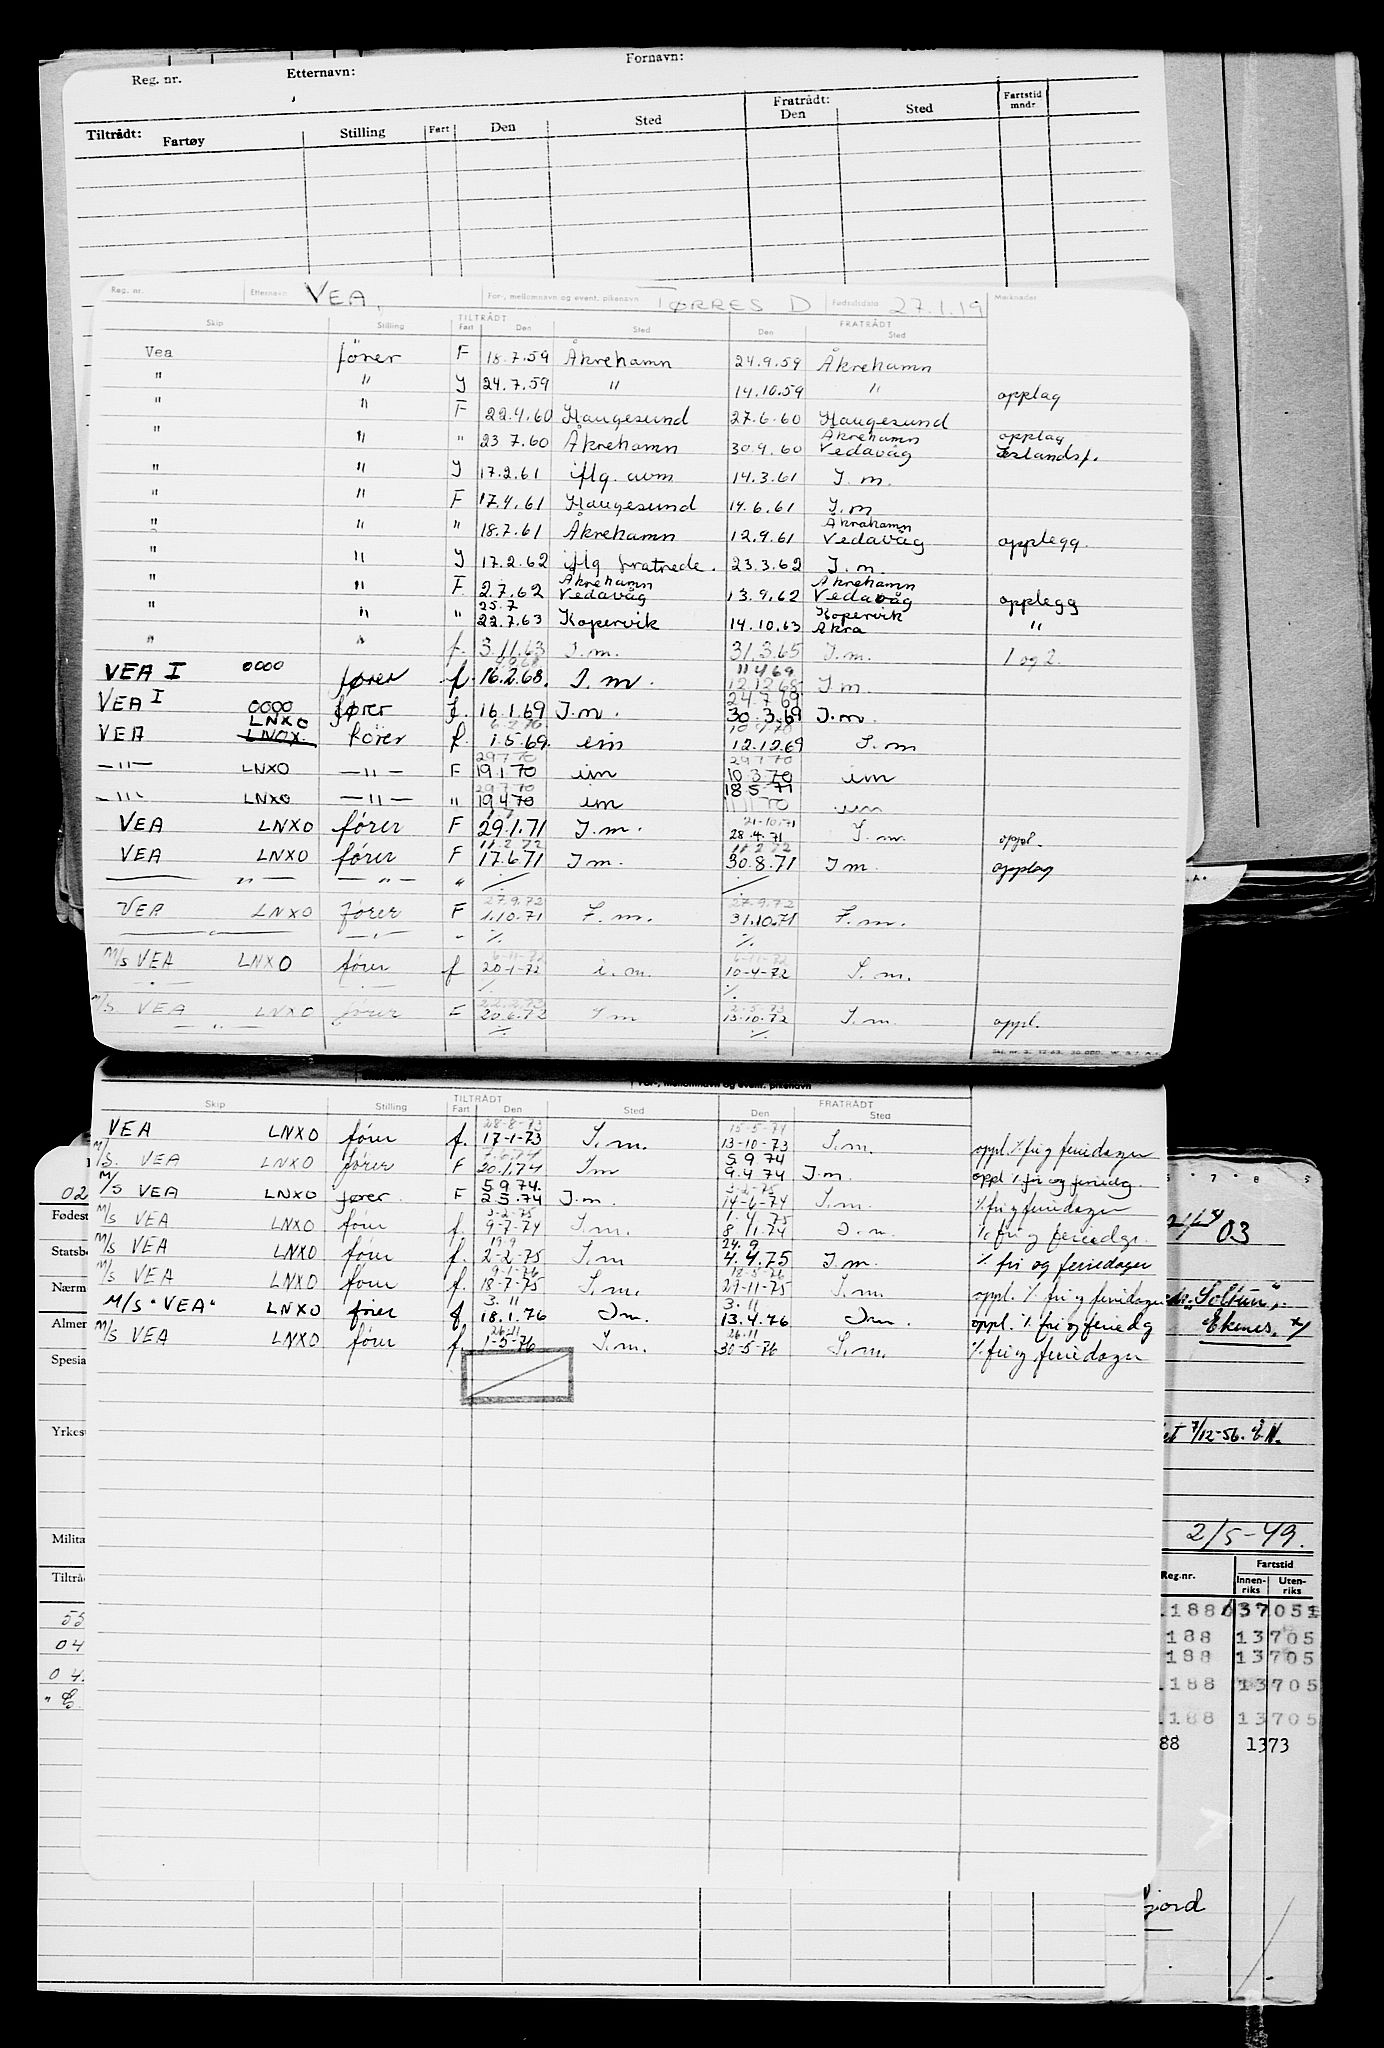 Reg. nr. Etternavn: Fornavn:
Tiltrådt: Fartøy Stilling Fart Den Sted Fratrådt: Den Sted Fartstid mndr
Reg. nr. Etternavn VEA, For-, mellomnavn og event. pikenavn TORRES D Fødselsdato 27.1.19 Merknader
Skip Stilling TILTRÅDT Fart Den Sted FRATRÅDT Den Sted
Vea fører F 18.7.59 Åkrehamn 24.9.59 Åkrehamn
" " I 24.7.59 " 14.10.59 " opplag
" " F 22.4.60 Haugesund 27.6.60 Haugesund opplag
" " " 23 7.60 Åkrehamn 30.9.60 Åkrehamn Vedavåg Islandsf.
" " I 17.2.61 iflg. avm 14.3.61 I. m.
" " F 17.4.61 Haugesund 14.6.61 I. m
" " " 18.7.61 Åkrehamn 12.9.61 Åkrahamn Vedavåg opplegg.
" " I 17.2.62 iflg fratrede. 23.3.62 I. m.
" " F 2.7.62 Åkrehamn Vedavåg 13.9.62 Åkrehamn Vedavåg opplegg
" " " 25.7 22.7.63 Kopervik 14.10.63 Kopervik Åkra "
" " f. 3.11.63 I. m. 31.3.65 I. m. 1 og 2.
VEA I 0000 fører f. 16.2.68. I. m. 11 4 69 12.12 68 I m
VEA I 0000 fører f. 16.1.69 I.m. 24.7 69 30.3.69 I.m.
VEA LNXO LNOX. fører f. 6.2.70 1.5.69. im 10.4.70 12.12.69 I. m
—"— LNXO —"— F 29 7 70 19.1.70 im 29 7 70 10 3 70 im
—"— LNXO —"— " 29 7 70 19.4.70 im 18 5 71 im
VEA LNXO fører F 29.1.71 I.m. 21-10.71 28.4.71 I. m. oppl.
VEA LNXO fører F 11.2 72 17.6.71 I m. 11 2 72 30.8.71 I m. opplag
—"— —"— " ./. ./.
VEA LNXO fører F 27.9.72 1.10.71 I. m. 27.9.72 31.10.71 I. m.
—"— —"— " ./. ./.
M/S VEA LNXO fører f 6-11-72 20-1-72 i. m. 6-11-72 10-4-72 I. m.
./. ./.
M/S VEA LNXO fører F 22.2.73 20.6.72 I m 2.5.73 13.10.72 I. m. oppl.
—"— ./. ./.
For-, mellomnavn og event. pikenavn
Skip Stilling TILTRÅDT Fart Den Sted FRATRÅDT Den Sted
VEA LNXO fører f. 28-8-73 17-1-73 I. m. 15-5-74 13-10-73 I. m. oppl. ./. fri og feriedager
M/S. VEA LNXO fører F 20.1.74 I m 5 9 74 9.4 74 I m. oppl ./. fri og feriedg.
M/S VEA LNXO fører. F 5 9 74. 2.5.74 I. m. 3-2-75 14-6-74 I. m. ./. fri og feriedager
M/S VEA LNXO fører f. 3-2-75 9-7-74 I. m. 1.4 75 8 11.74 I. m. ./. fri og feriedgr.
M/S VEA LNXO fører f. 19.9 2-2-75 I. m 24.9 4.4.75 I. m. ./. fri og feriedager
M/S VEA LNXO fører f. 9-1-76 18-7-75 I. m. 18-5-76 29-11-75 I. m. oppl. ./. fri og feriedager
M/S "VEA" LNXO fører f 3.11 18.1.76 I m. 3.11 13.4.76 I m. oppl. ./. fri og feriedg
M/S VEA LNXO fører f. 26.11 1-5-76 I. m. 26.11 30-5-76 I. m. ./. fri og feriedager
02
Fødest
Statsbo
Nærm
Almer
Spesia
Yrkest
Milita
Tiltrå
03
"Solsun",
Ekenes,
7/12-56.
2/5-49.
Reg.nr. Fartstid Innen-riks Uten-riks
188 13705
188 13705
188 13705
188 13705
88 1373
jord